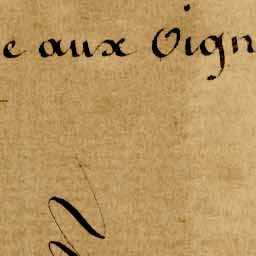 e aux Oign